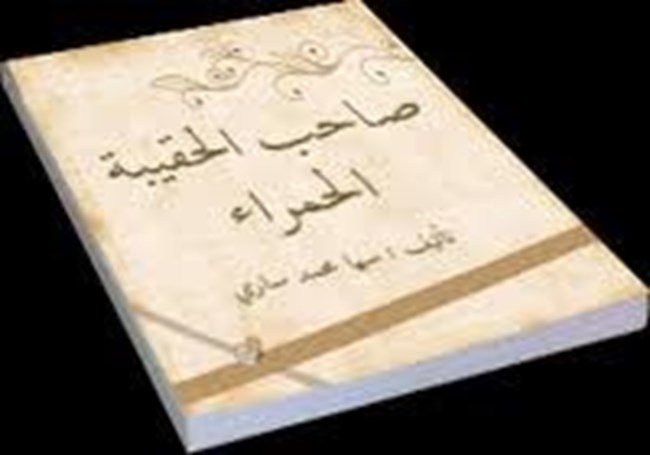 صاحب الحقيبة
الحمراء
تأليف : سها محمد ساري